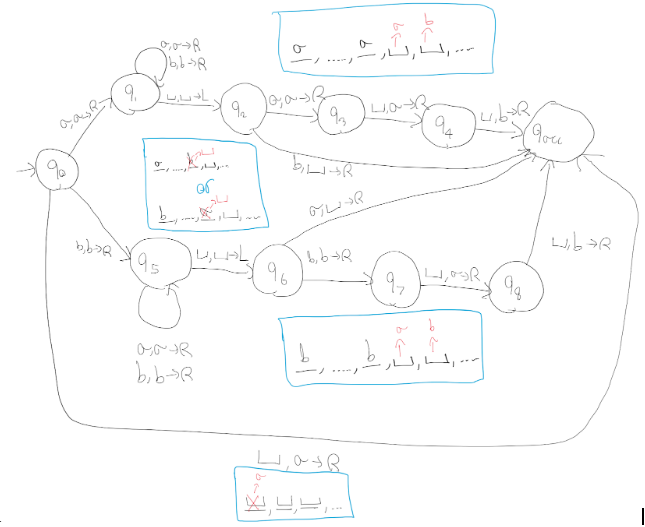 a b
a, ...., a, ⊔, ⊔, ....
a,a→R
b,b→R
q₁
a,a→R
⊔,⊔→L
q₂
a,a→R
q₃
⊔,a→R
q₄
⊔,b→R
qacc
q₀
⊔
a, ..., b, ⊔, ...
or
⊔
b, ...., a, ⊔, ....
b,⊔→R
a,⊔→R
b,b→R
q₅
⊔,⊔→L
q₆
b,b→R
q₇
⊔,a→R
q₈
⊔,b→R
a,a→R
b,b→R
a b
b, ...., b, ⊔, ⊔, ....
⊔,a→R
a
⊔, ⊔, ⊔, ...